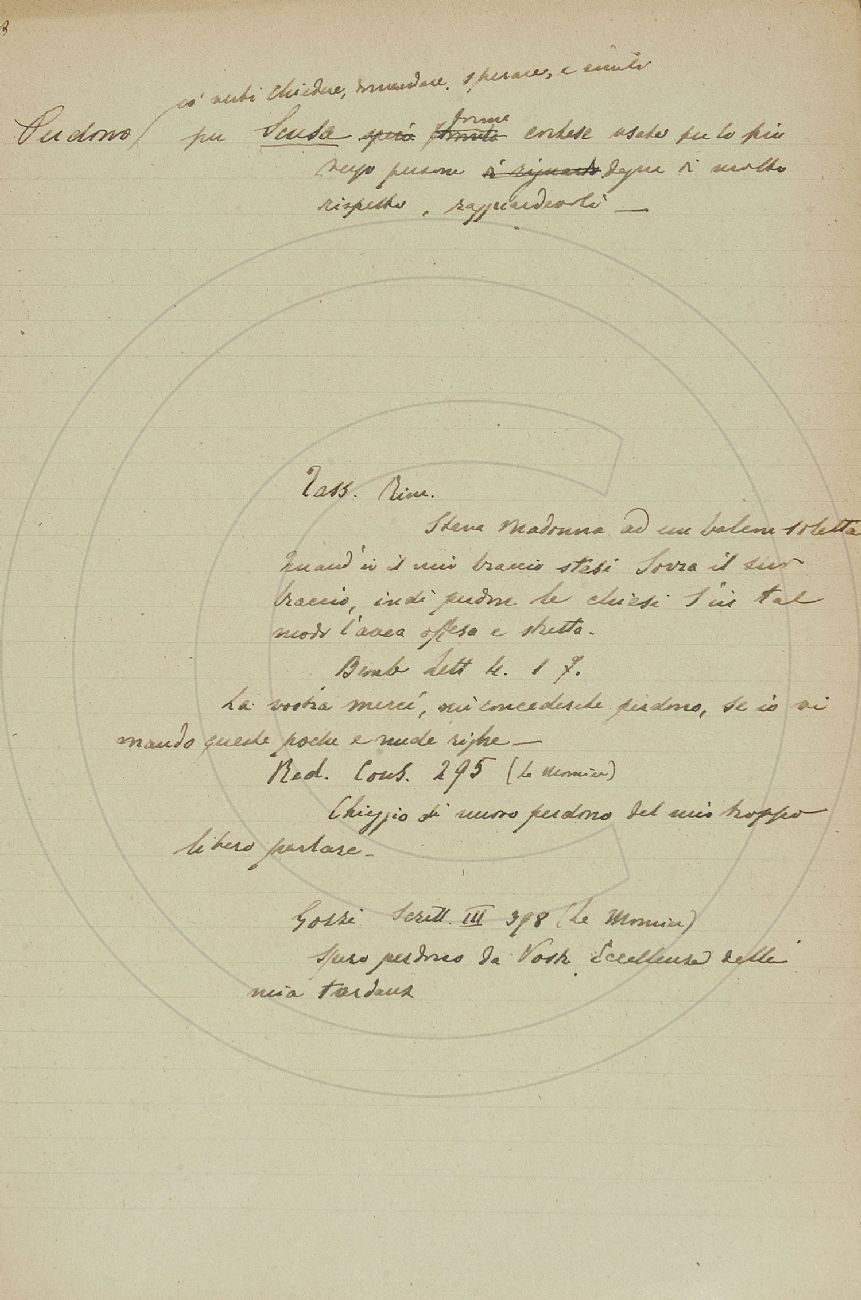 co' verbi Chiedere, domandare, sperare, e simili
Perdono per Scusa però forma cortese usata per lo più
verso persone di riguardo degne di molto
rispetto, ragguardevoli —
Tass. Rim.
Stava Madonna ad un balcon soletta
Quand'io il mio braccio stesi Sovra il suo
braccio, indi perdon le chiesi S'in tal
modo l'avea offesa e stretta.
Bemb Lett 4. 1 7.
La vostra mercé, mi concederete perdono, se io vi
mando queste poche e nude righe —
Red. Cons. 295 (Le Monnier)
Chieggio di nuovo perdono del mio troppo
libero parlare —
Gozzi Scritt. III 398 (Le Monnier)
Spero perdono da Vostr. Eccellenza della
mia tardanz